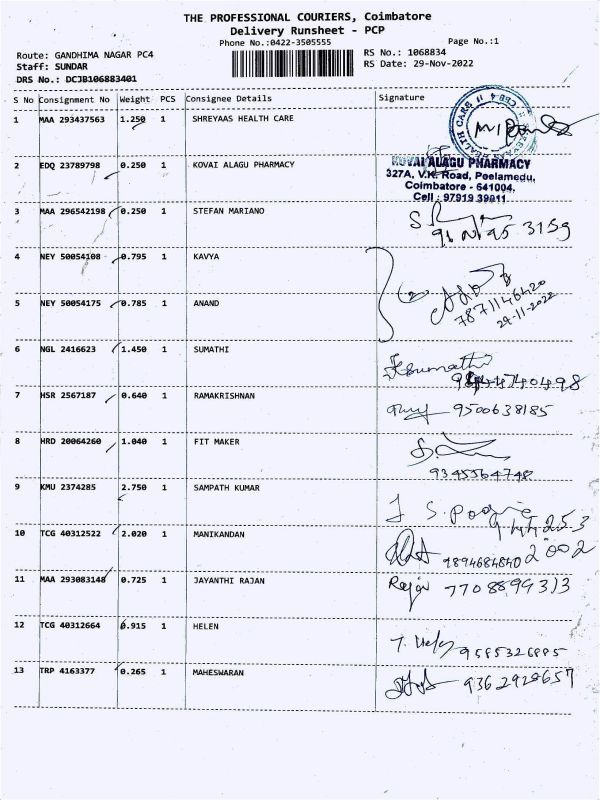 THE PROFESSIONAL COURIERS, Coimbatore
Delivery Runsheet - PCP
Phone No.:0422-3505555
Page No.:1
Route: GANDHIMA NAGAR PC4
RS No.: 1068834
Staff: SUNDAR
RS Date: 29-Nov-2022
DRS No.: DCJB106883401
S No Consignment No Weight PCS Consignee Details Signature
1 MAA 293437563 1.250 1 SHREYAAS HEALTH CARE
2 EDQ 23789798 0.250 1 KOVAI ALAGU PHARMACY
KOVAI ALAGU PHARMACY
327A, V.K. Road, Peelamedu,
Coimbatore - 641004.
Cell : 97919 39911
3 MAA 296542198 0.250 1 STEFAN MARIANO
3159
4 NEY 50054108 0.795 1 KAVYA
5 NEY 50054175 0.785 1 ANAND
7871146420
29-11-2022
6 NGL 2416623 1.450 1 SUMATHI
Ksumathi
7 HSR 2567187 0.640 1 RAMAKRISHNAN
9500638185
8 HRD 20064260 1.040 1 FIT MAKER
9345564748
9 KMU 2374285 2.750 1 SAMPATH KUMAR
10 TCG 40312522 2.020 1 MANIKANDAN
9894684840
2002
11 MAA 293083148 0.725 1 JAYANTHI RAJAN
Rajan 7708899313
12 TCG 40312664 0.915 1 HELEN
T. Helen 9585326885
13 TRP 4163377 0.265 1 MAHESWARAN
9362928657